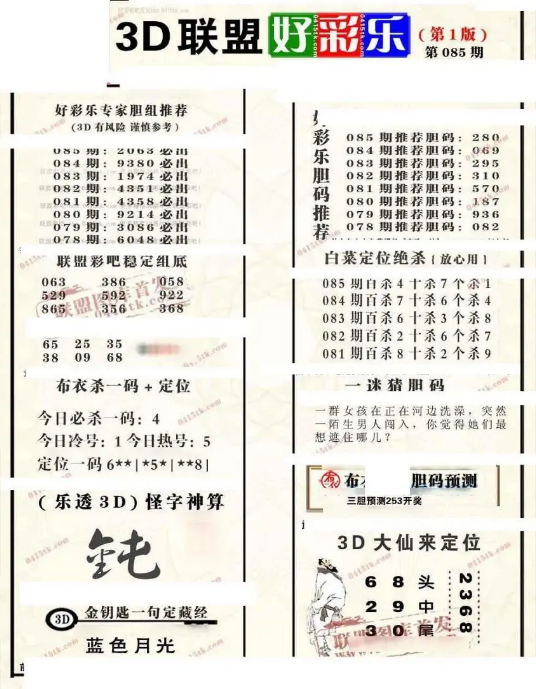 3D联盟好彩乐(第1版)
第085期
好彩乐专家胆组推荐
(3D有风险 谨慎参考)
085期: 2063必出
084期: 9380必出
083期: 1974必出
082期: 4351必出
081期: 4358必出
080期: 9214必出
079期: 3086必出
078期: 6048必出
联盟彩吧稳定组底
063 386 058
529 592 922
865 356 368
65 25 35
38 09 68
布衣杀一码+定位
今日必杀一码: 4
今日冷号: 1 今日热号: 5
定位一码 6**|*5*|**8|
(乐透3D)怪字神算
3D 金钥匙一句定藏经
蓝色月光
彩乐胆码推荐
085期推荐胆码: 280
084期推荐胆码: 069
083期推荐胆码: 295
082期推荐胆码: 310
081期推荐胆码: 570
080期推荐胆码: 187
079期推荐胆码: 936
078期推荐胆码: 082
白菜定位绝杀{放心用}
085期百杀4十杀7个杀1
084期百杀7十杀6个杀4
083期百杀6十杀3个杀8
082期百杀2十杀6个杀7
081期百杀8十杀2个杀9
一迷猜胆码
一群女孩在正在河边洗澡, 突然
一陌生男人闯入, 你觉得她们最
想遮住哪儿?
布 胆码预测
三胆预测253开奖
3D大仙来定位
6 8 头
2 9 中
3 0 尾
2368